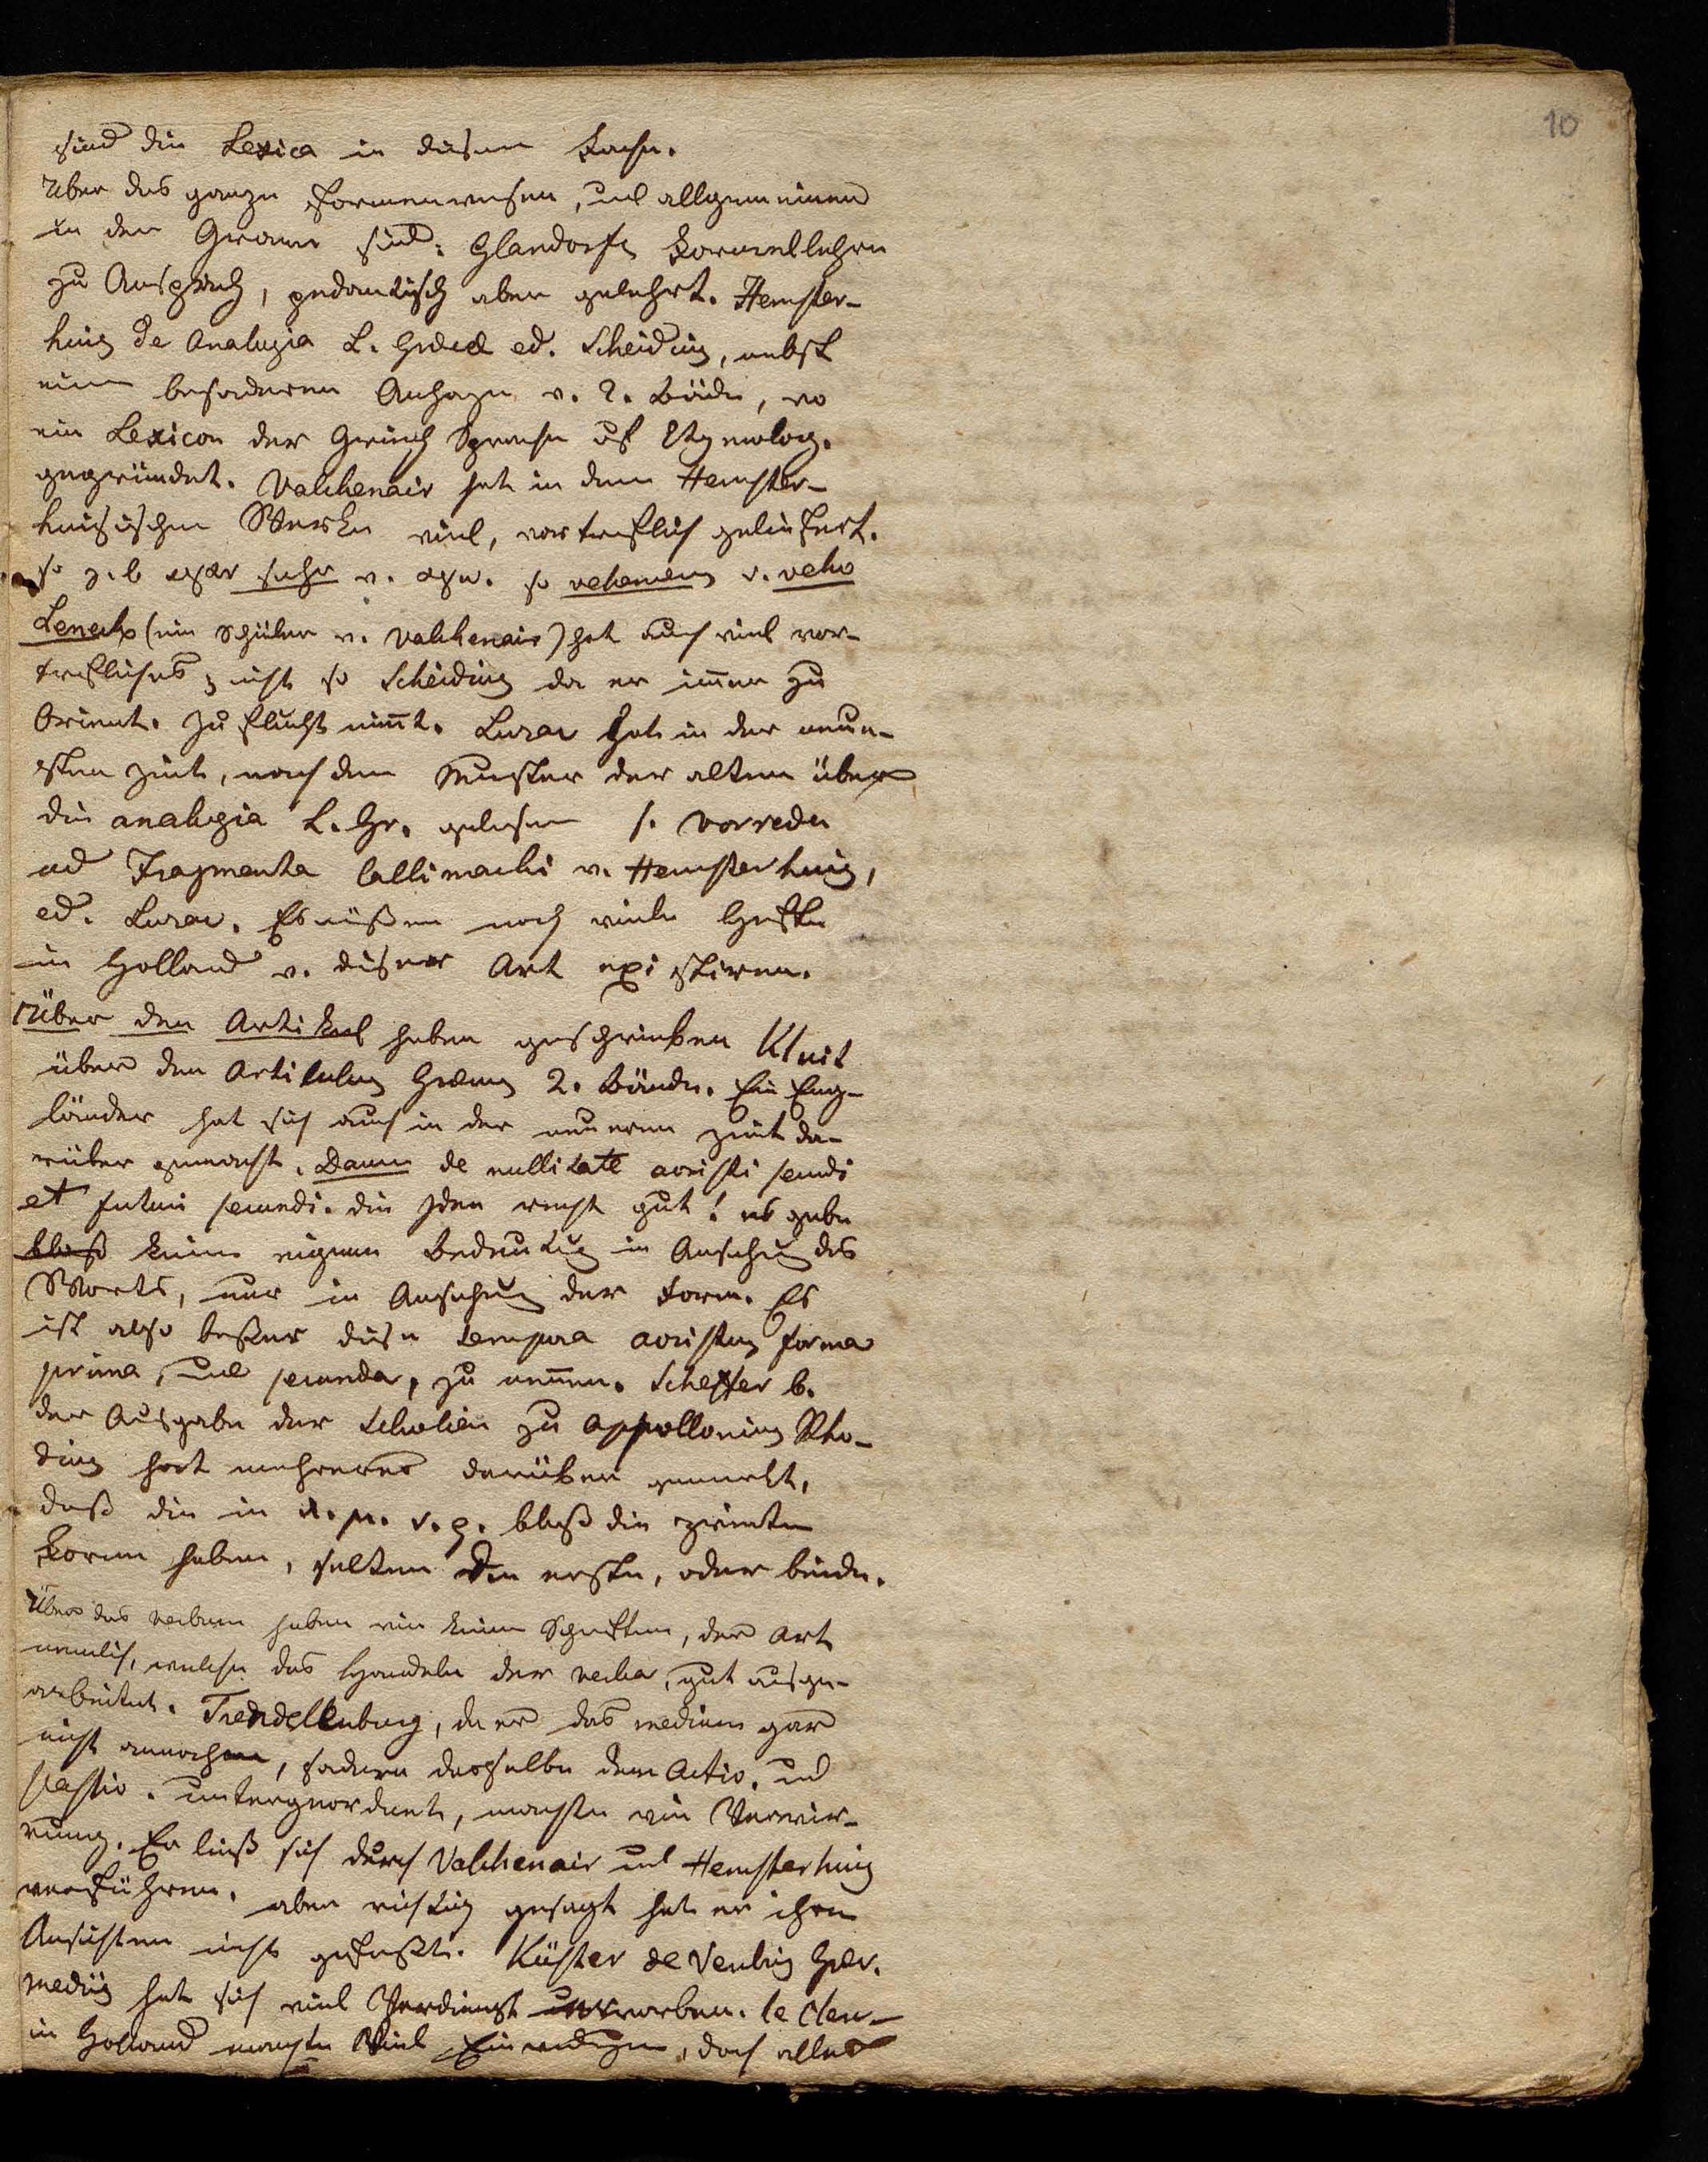 10
sind die Lexica in diesem Fache.
Über das ganze Formenwesen, und allgemeinen
in der Gramm sind: Glandorfs Formellehre
zu Anspruch, pedantisch aber gelehrt. Hemster-
huis de Analogia L. Græcæ ed. Scheidius, nebst
einem besonderen Anhange v. 2. Bände, wo
ein Lexicon der Griech Sprache auf Etymolog.
gegründet. Valckenair hat in dem Hemster-
huisischen Werke viel, vortreflich geliefert.
so z. b sehr v. so vehemens v. veho
Lenep (ein Schüler v. Valckenair) hat auch viel vor-
trefliches, nicht so Scheidius da er immer zu
Orient. Zuflucht nimt. Luzac hat in der neue-
sten Zeit, nach dem Muster der alten über
die analogia L. Gr. gelesen s. Vorrede
ad Fragmenta Callimachi v. Hemsterhuis,
ed. Luzac. Es müßen noch viele Hefte
in Holland v. dieser Art existiren.
Über den Artikel haben geschrieben Kluit
über den Articulus Græcus 2. Bände. Ein Eng-
länder hat sich auch in der neueren Zeit da-
rüber gemacht. Dawes de nullitate aoristi secundi
et futuri secundi. die Idee recht gut! es gebe
bloß keine eigene Bedeutung in Ansehung des
Worts, nur in Ansehung der Form. Es
ist also beßer diese tempora aoristus forma
prima, und secunda, zu nennen. Scheffer b.
der Ausgabe der Scholien zu Appollonius Rho-
dius hat mehreres darüber gemerkt,
daß die in λ. μ. ν. ρ. bloß die zweite
Form haben, selten die erste, oder beide.
Über das verbum haben wir keine Schriften, der Art
nemlich, welche das Handeln der verba, gut ausge-
arbeitet. Trendellenburg, da er das medium gar
nicht annahm, sondern dasselbe dem Activ. und
Passiv. untergeordnet, machte ein Verwir-
rung. Er ließ sich durch Valckenair und Hemsterhuis
verführen. aber richtig gesagt hat er ihre
Ansichten nicht gefaßt. Küster de Verbis Græc.
mediis hat sich viel Verdienst erworben. le Clerc
in Holland machte Viel Einwendungen, doch alles